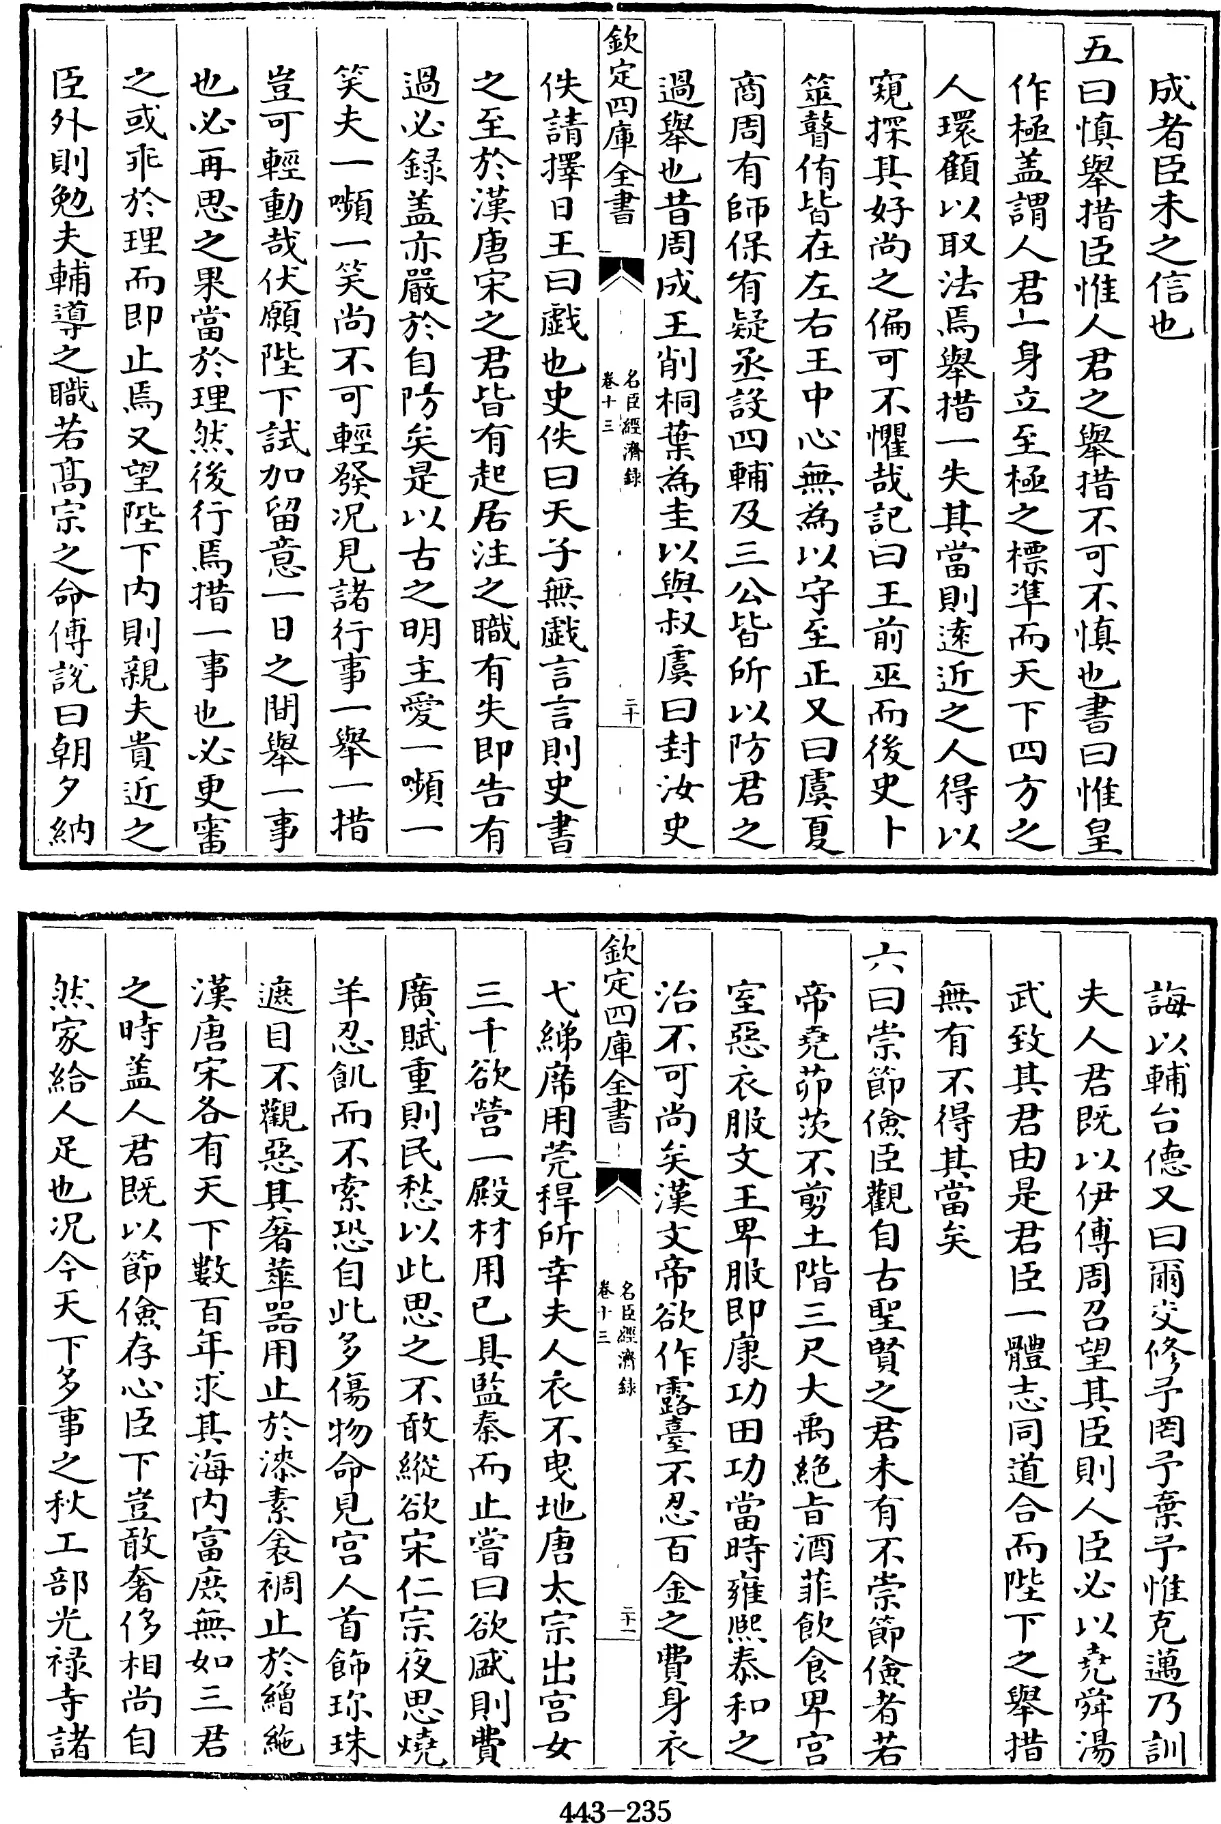 成者臣未之信也
五曰慎舉措臣惟人君之舉措不可不慎也書曰惟皇
作極盖謂人君一身立至極之標準而天下四方之
人環顧以取法焉舉措一失其當則遠近之人得以
窺探其好尚之偏可不懼哉記曰王前巫而後史卜
筮瞽侑皆在左右王中心無為以守至正又曰虞夏
商周有師保有疑丞設四輔及三公皆所以防君之
過舉也昔周成王削桐葉為圭以與叔虞曰封汝史
欽定四庫全書
名臣經濟録
卷十三
二十
佚請擇日王曰戲也史佚曰天子無戲言言則史書
之至於漢唐宋之君皆有起居注之職有失即告有
過必録盖亦嚴於自防矣是以古之明主愛一嚬一
笑夫一嚬一笑尚不可輕發况見諸行事一舉一措
豈可輕動哉伏願陛下試加留意一日之間舉一事
也必再思之果當於理然後行焉措一事也必更審
之或乖於理而即止焉又望陛下内則親夫貴近之
臣外則勉夫輔導之職若髙宗之命傅說曰朝夕納
誨以輔台德又曰爾交修予罔予棄予惟克邁乃訓
夫人君既以伊傅周召望其臣則人臣必以堯舜湯
武致其君由是君臣一體志同道合而陛下之舉措
無有不得其當矣
六曰崇節儉臣觀自古聖賢之君未有不崇節儉者若
帝堯茆茨不剪土階三尺大禹絶旨酒菲飲食卑宫
室惡衣服文王卑服即康功田功當時雍熙泰和之
治不可尚矣漢文帝欲作露臺不忍百金之費身衣
欽定四庫全書
名臣經濟録
卷十三
二十一
弋綈席用莞稈所幸夫人衣不曳地唐太宗出宫女
三千欲營一殿材用已具監秦而止嘗曰欲盛則費
廣賦重則民愁以此思之不敢縱欲宋仁宗夜思燒
羊忍飢而不索恐自此多傷物命見宫人首飾珎珠
遮目不觀惡其奢華器用止於漆素衾裯止於繒絁
漢唐宋各有天下數百年求其海内富庶無如三君
之時盖人君既以節儉存心臣下豈敢奢侈相尚自
然家給人足也况今天下多事之秋工部光禄寺諸
443-235